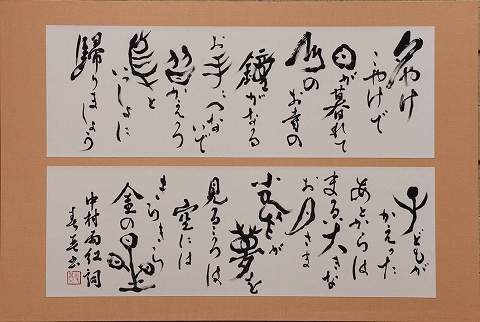 夕やけ
こやけで
日が暮れて
山の
お寺の
鐘がなる
お手々つない
で
皆かえろう
烏と
いっしょに
歸りましょう
子どもが
かえった
あとからは
まるい大きな
お月さま
小鳥が
夢を
見るころは
空には
きらきら
金の星
中村雨紅 詞